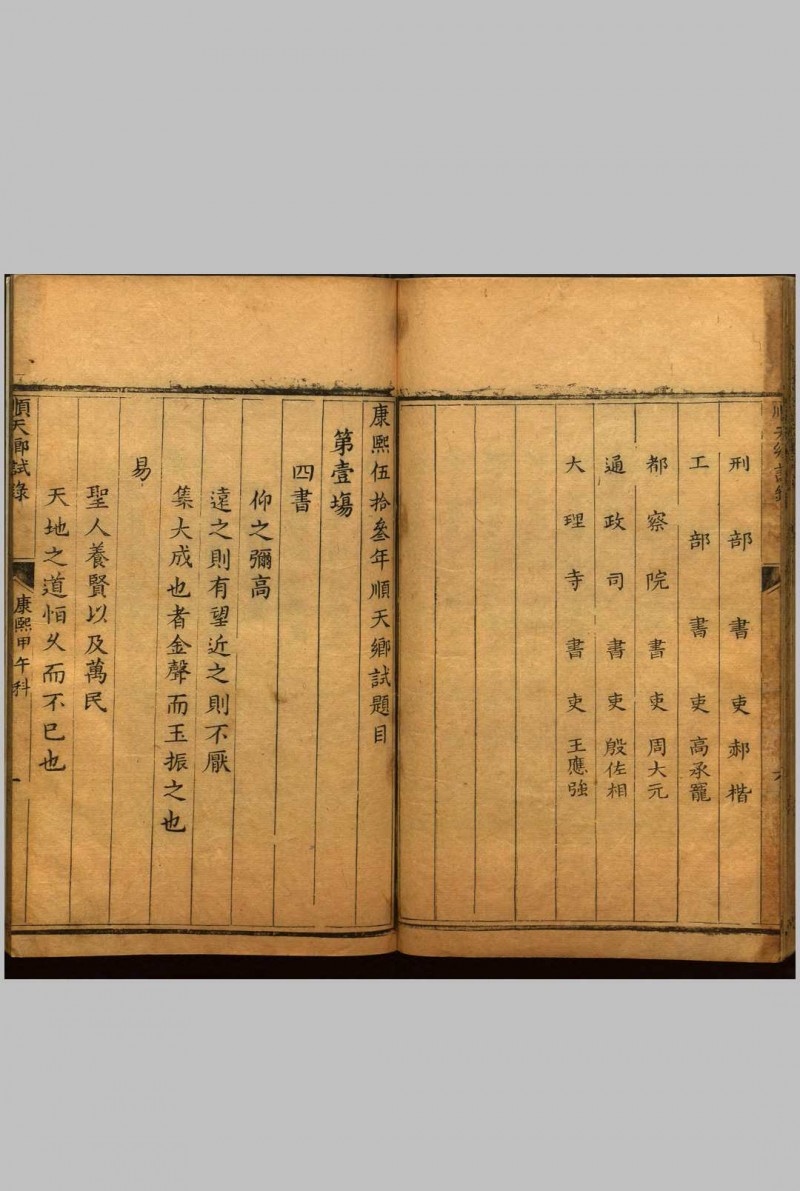 刑部書吏郝楷
工部書吏高承寵
都察院書吏周大元
通政司書吏殷佐相
大理寺書吏王應強
康熙伍拾叄年順天鄉試題目
第壹塲
四書
仰之彌高
遠之則有望近之則不厭
集大成也者金聲而玉振之也
易
聖人養賢以及萬民
天地之道恒久而不已也
順天鄉試錄
康熙甲午科
一